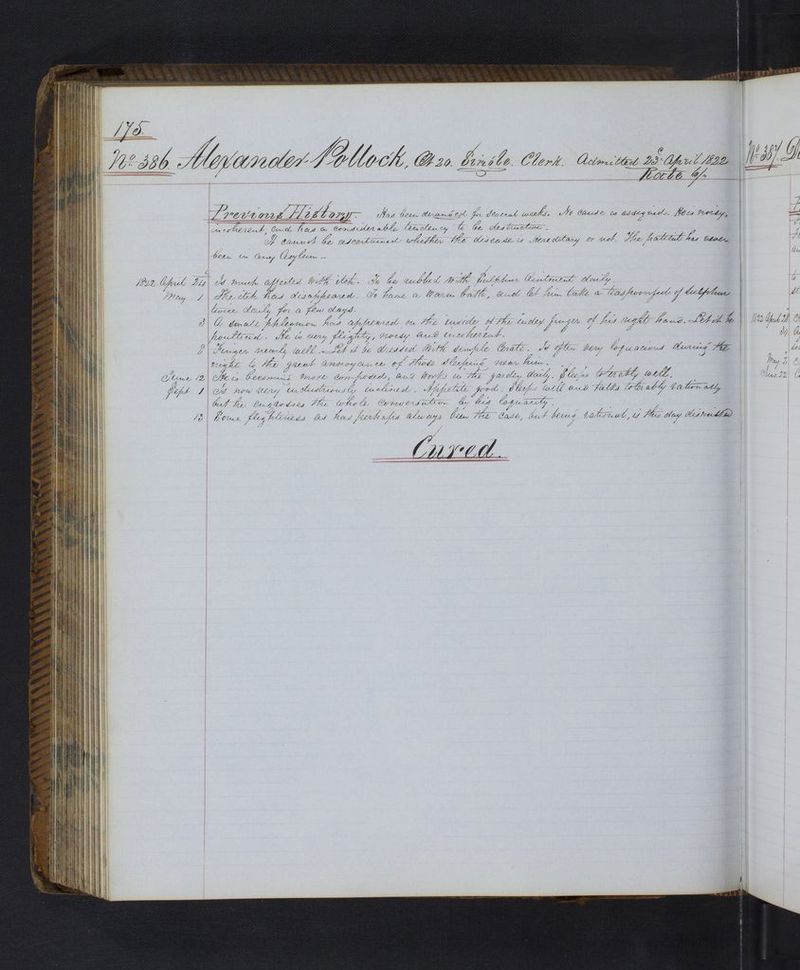 175.
No. 386. Alexander Pollock, Æt 20. Single. Clerk. Admitted 23d April 1822
Rate 6/-
Previous History. Has been deranged for several weeks. No cause is assigned. He is noisy,
incoherent, and has a considerable tendency to be destructive.
It cannot be ascertained whether the disease is hereditary or not. The patient has never
been in any Asylum.
1822 April 24 Is much affected with itch. To be rubbed with Sulphur Ointment daily.
May 1 The itch has disappeared. To have a warm bath, and let him take a teaspoonful of Sulphur
twice daily for a few days.
3 A small phlegmon has appeared on the inside of the index finger of his right hand. Let it be
poulticed. He is very flighty, noisy and incoherent.
8 Finger nearly well. Let it be dressed with simple Cerate. Is often very loquacious during the
night to the great annoyance of those sleeping near him.
June 12 He is becoming more composed, and works in the garden daily. Sleeps tolerably well.
Sept 1 Is now very industriously inclined. Appetite good. Sleeps well and talks tolerably rationally
but he engrosses the whole conversation by his loquacity.
12 Some flightiness as has perhaps always been the case, but being rational, is this day dismissed
Cured.
No. 387
1822 April 28
May 3
June 22